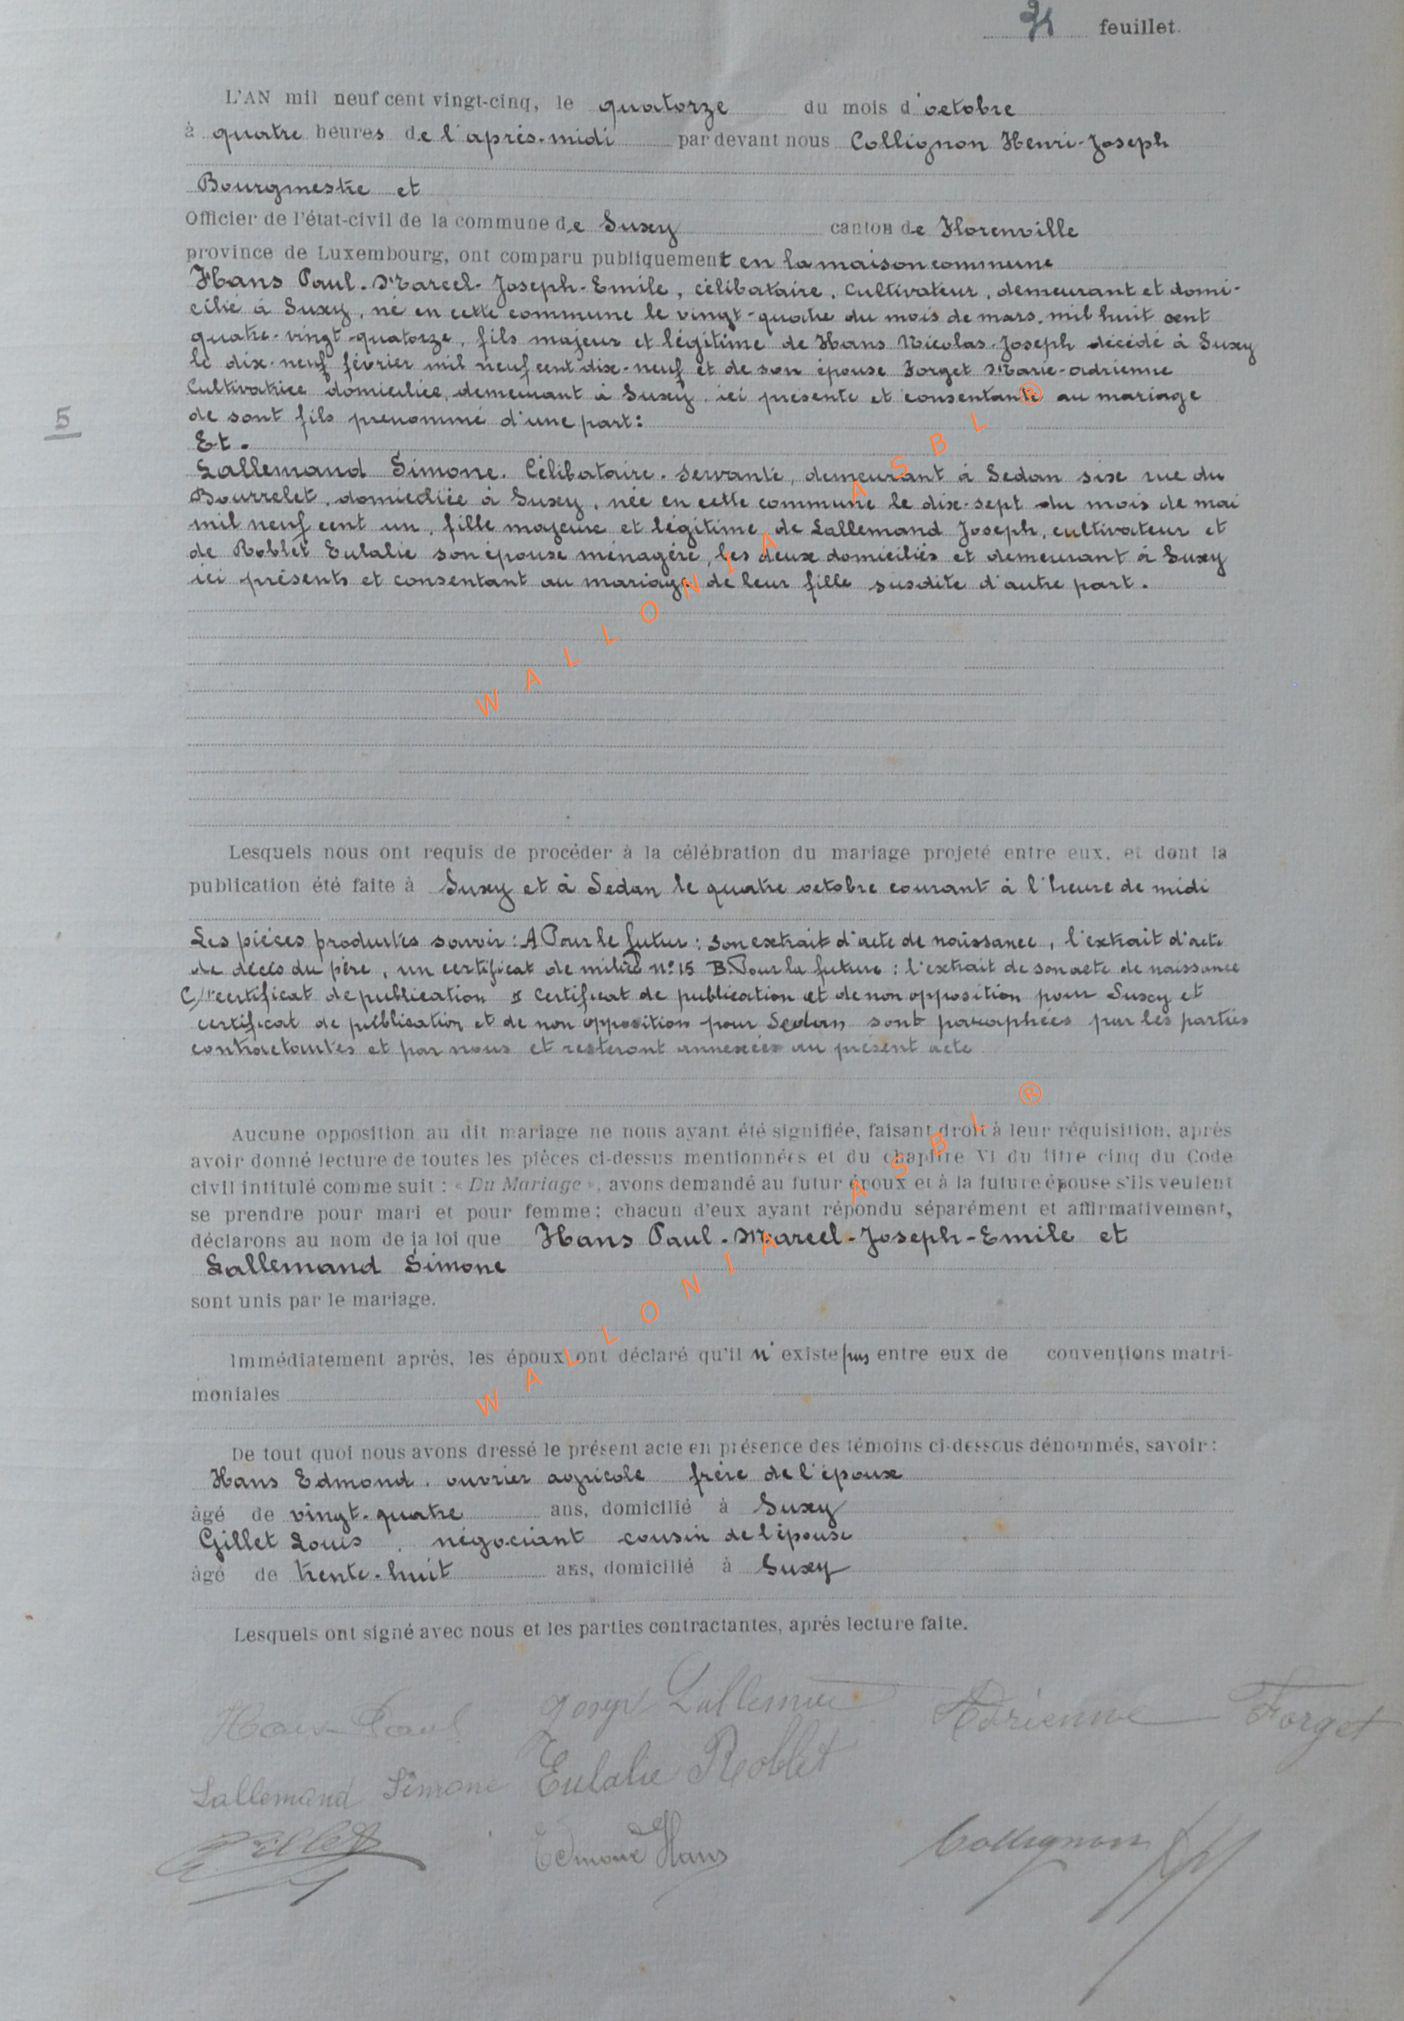 feuillet.
L'AN mil neuf cent vingt-cinq, le quatorze du mois d'octobre
à quatre heures de l'après-midi par devant nous Collignon Henri-Joseph
Bourgmestre et
Officier de l'état-civil de la commune de Suxy canton de Florenville
province de Luxembourg, ont comparu publiquement en la maison commune
Hans Paul-Marcel-Joseph-Emile, célibataire, cultivateur, demeurant et domi-
cilié à Suxy, né en cette commune le vingt-quatre du mois de mars, mil huit cent
quatre-vingt-quatorze, fils majeur et légitime de Hans Nicolas-Joseph décédé à Suxy
le dix-neuf février mil neuf cent dix-neuf et de son épouse Forget Marie-Adrienne
Cultivatrice domiciliée, demeurant à Suxy, ici présente et consentante au mariage
5
de sont fils prénommé d'une part:
Et.
Lallemand Simone. Célibataire. Servante, demeurant à Sedan sise rue du
Bourrelet, domiciliée à Suxy, née en cette commune le dix-sept du mois de mai
mil neuf cent un, fille majeure et légitime de Lallemand Joseph, cultivateur et
de Roblet Eulalie son épouse ménagère, les deux domiciliés et demeurant à Suxy
ici présents et consentant au mariage de leur fille susdite d'autre part.
WALLONIA ASBL ®
Lesquels nous ont requis de procéder à la célébration du mariage projeté entre eux, et dont la
publication été faite à Suxy et à Sedan le quatre octobre courant à l'heure de midi
Les pièces produites savoir: A Pour le futur: son extrait d'acte de naissance, l'extrait d'acte
de décès du père, un certificat de milice n° 15 B. Pour la future: l'extrait de son acte de naissance
C/ certificat de publication certificat de publication et de non opposition pour Suxy et
certificat de publication et de non opposition pour Sedan sont paraphées par les parties
contractantes et par nous et resteront annexées au présent acte
Aucune opposition au dit mariage ne nous ayant été signifiée, faisant droit à leur réquisition, après
avoir donné lecture de toutes les pièces ci-dessus mentionnées et du chapitre VI du titre cinq du Code
civil intitulé comme suit : « Du Mariage », avons demandé au futur époux et à la future épouse s'ils veulent
se prendre pour mari et pour femme; chacun d'eux ayant répondu séparément et affirmativement,
déclarons au nom de la loi que Hans Paul-Marcel-Joseph-Emile et
Lallemand Simone
sont unis par le mariage.
WALLONIA ASBL ®
Immédiatement après, les époux ont déclaré qu'il n'existe pas entre eux de conventions matri-
moniales
De tout quoi nous avons dressé le présent acte en présence des témoins ci-dessous dénommés, savoir:
Hans Edmond, ouvrier agricole frère de l'époux
âgé de vingt-quatre ans, domicilié à Suxy
Gillet Louis, négociant cousin de l'épouse
âgé de trente-huit ans, domicilié à Suxy
Lesquels ont signé avec nous et les parties contractantes, après lecture faite.
Hans Paul Adrienne Forget
Lallemand Simone Eulalie Roblet
Gillet Edmond Hans Collignon